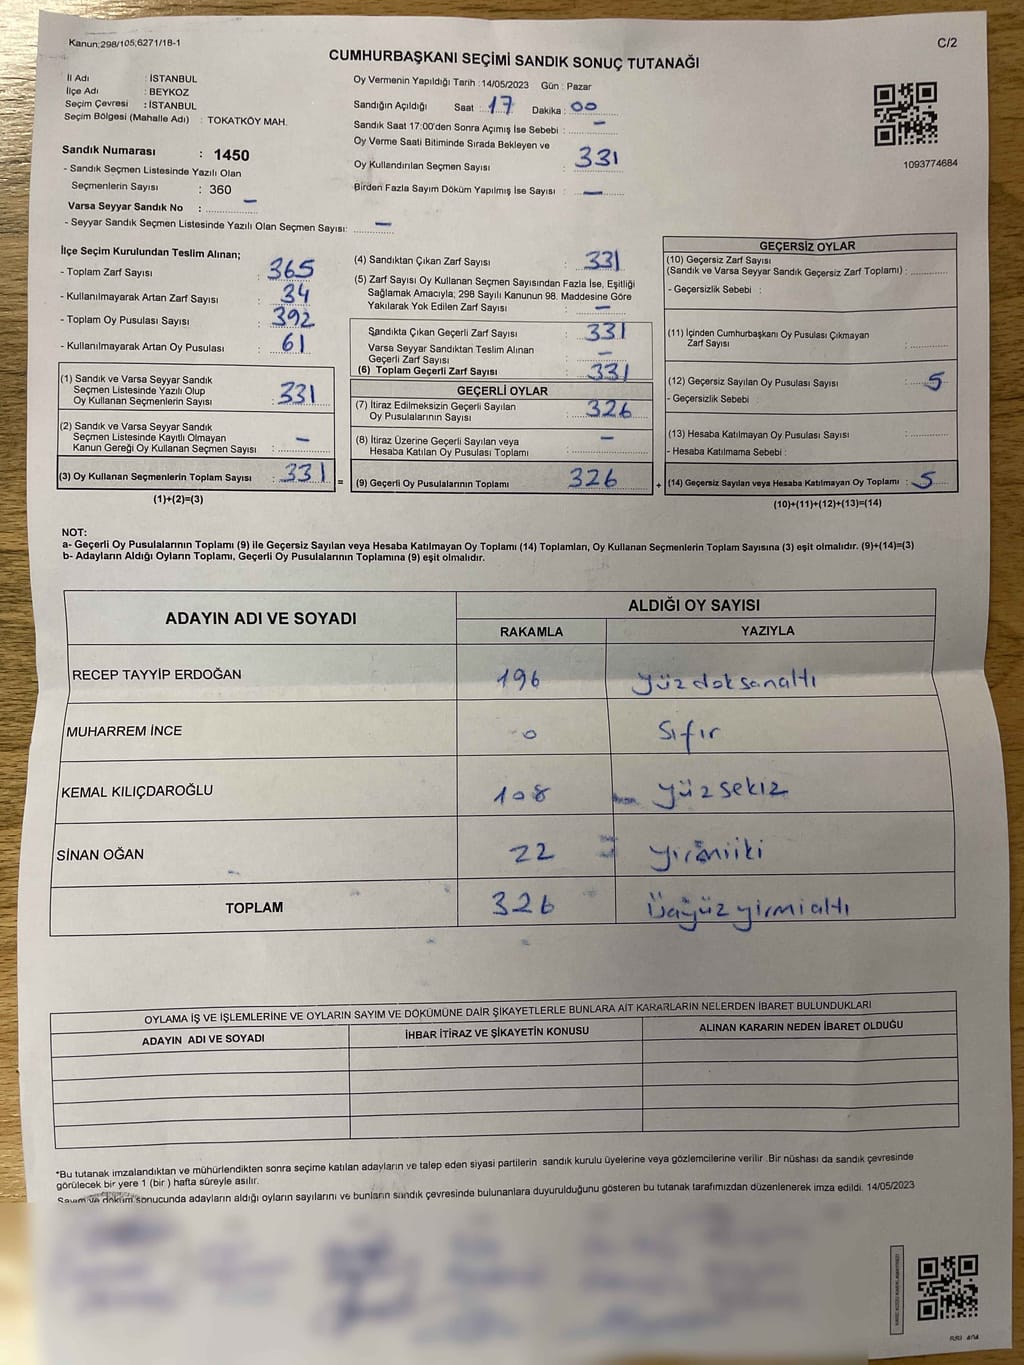 Kanun;298/105,6271/18-1
C/2
CUMHURBAŞKANI SEÇİMİ SANDIK SONUÇ TUTANAĞI
İl Adı : İSTANBUL
İlçe Adı : BEYKOZ
Seçim Çevresi : İSTANBUL
Seçim Bölgesi (Mahalle Adı) : TOKATKÖY MAH.
Sandık Numarası : 1450
- Sandık Seçmen Listesinde Yazılı Olan
Seçmenlerin Sayısı : 360
Varsa Seyyar Sandık No : –
- Seyyar Sandık Seçmen Listesinde Yazılı Olan Seçmen Sayısı: –
Oy Vermenin Yapıldığı Tarih : 14/05/2023 Gün : Pazar
Sandığın Açıldığı Saat : 17 Dakika : 00
Sandık Saat 17:00'den Sonra Açımış İse Sebebi : –
Oy Verme Saati Bitiminde Sırada Bekleyen ve
Oy Kullandırılan Seçmen Sayısı : 331
Birden Fazla Sayım Döküm Yapılmış İse Sayısı : –
1093774684
İlçe Seçim Kurulundan Teslim Alınan;
- Toplam Zarf Sayısı : 365
- Kullanılmayarak Artan Zarf Sayısı : 34
- Toplam Oy Pusulası Sayısı : 392
- Kullanılmayarak Artan Oy Pusulası : 61
(1) Sandık ve Varsa Seyyar Sandık
Seçmen Listesinde Yazılı Olup
Oy Kullanan Seçmenlerin Sayısı : 331
(2) Sandık ve Varsa Seyyar Sandık
Seçmen Listesinde Kayıtlı Olmayan
Kanun Gereği Oy Kullanan Seçmen Sayısı : –
(3) Oy Kullanan Seçmenlerin Toplam Sayısı : 331
(1)+(2)=(3)
(4) Sandıktan Çıkan Zarf Sayısı : 331
(5) Zarf Sayısı Oy Kullanan Seçmen Sayısından Fazla İse, Eşitliği
Sağlamak Amacıyla; 298 Sayılı Kanunun 98. Maddesine Göre
Yakılarak Yok Edilen Zarf Sayısı : –
Sandıkta Çıkan Geçerli Zarf Sayısı : 331
Varsa Seyyar Sandıktan Teslim Alınan
Geçerli Zarf Sayısı : –
(6) Toplam Geçerli Zarf Sayısı : 331
GEÇERLİ OYLAR
(7) İtiraz Edilmeksizin Geçerli Sayılan
Oy Pusulalarının Sayısı : 326
(8) İtiraz Üzerine Geçerli Sayılan veya
Hesaba Katılan Oy Pusulası Toplamı : –
= (9) Geçerli Oy Pusulalarının Toplamı 326
GEÇERSİZ OYLAR
(10) Geçersiz Zarf Sayısı
(Sandık ve Varsa Seyyar Sandık Geçersiz Zarf Toplamı) :
- Geçersizlik Sebebi :
(11) İçinden Cumhurbaşkanı Oy Pusulası Çıkmayan
Zarf Sayısı :
(12) Geçersiz Sayılan Oy Pusulası Sayısı : 5
- Geçersizlik Sebebi :
(13) Hesaba Katılmayan Oy Pusulası Sayısı :
- Hesaba Katılmama Sebebi :
+ (14) Geçersiz Sayılan veya Hesaba Katılmayan Oy Toplamı : 5
(10)+(11)+(12)+(13)=(14)
NOT:
a- Geçerli Oy Pusulalarının Toplamı (9) ile Geçersiz Sayılan veya Hesaba Katılmayan Oy Toplamı (14) Toplamları, Oy Kullanan Seçmenlerin Toplam Sayısına (3) eşit olmalıdır. (9)+(14)=(3)
b- Adayların Aldığı Oyların Toplamı, Geçerli Oy Pusulalarının Toplamına (9) eşit olmalıdır.
ADAYIN ADI VE SOYADI
ALDIĞI OY SAYISI
RAKAMLA YAZIYLA
RECEP TAYYİP ERDOĞAN 196 yüzdoksanaltı
MUHARREM İNCE 0 sıfır
KEMAL KILIÇDAROĞLU 108 yüzsekiz
SİNAN OĞAN 22 yirmiiki
TOPLAM 326 üçyüzyirmialtı
OYLAMA İŞ VE İŞLEMLERİNE VE OYLARIN SAYIM VE DÖKÜMÜNE DAİR ŞİKAYETLERLE BUNLARA AİT KARARLARIN NELERDEN İBARET BULUNDUKLARI
ADAYIN ADI VE SOYADI İHBAR İTİRAZ VE ŞİKAYETİN KONUSU ALINAN KARARIN NEDEN İBARET OLDUĞU
*Bu tutanak imzalandıktan ve mühürlendikten sonra seçime katılan adayların ve talep eden siyasi partilerin sandık kurulu üyelerine veya gözlemcilerine verilir. Bir nüshası da sandık çevresinde
görülecek bir yere 1 (bir ) hafta süreyle asılır.
Sayım ve döküm sonucunda adayların aldığı oyların sayılarını ve bunların sandık çevresinde bulunanlara duyurulduğunu gösteren bu tutanak tarafımızdan düzenlenerek imza edildi. 14/05/2023